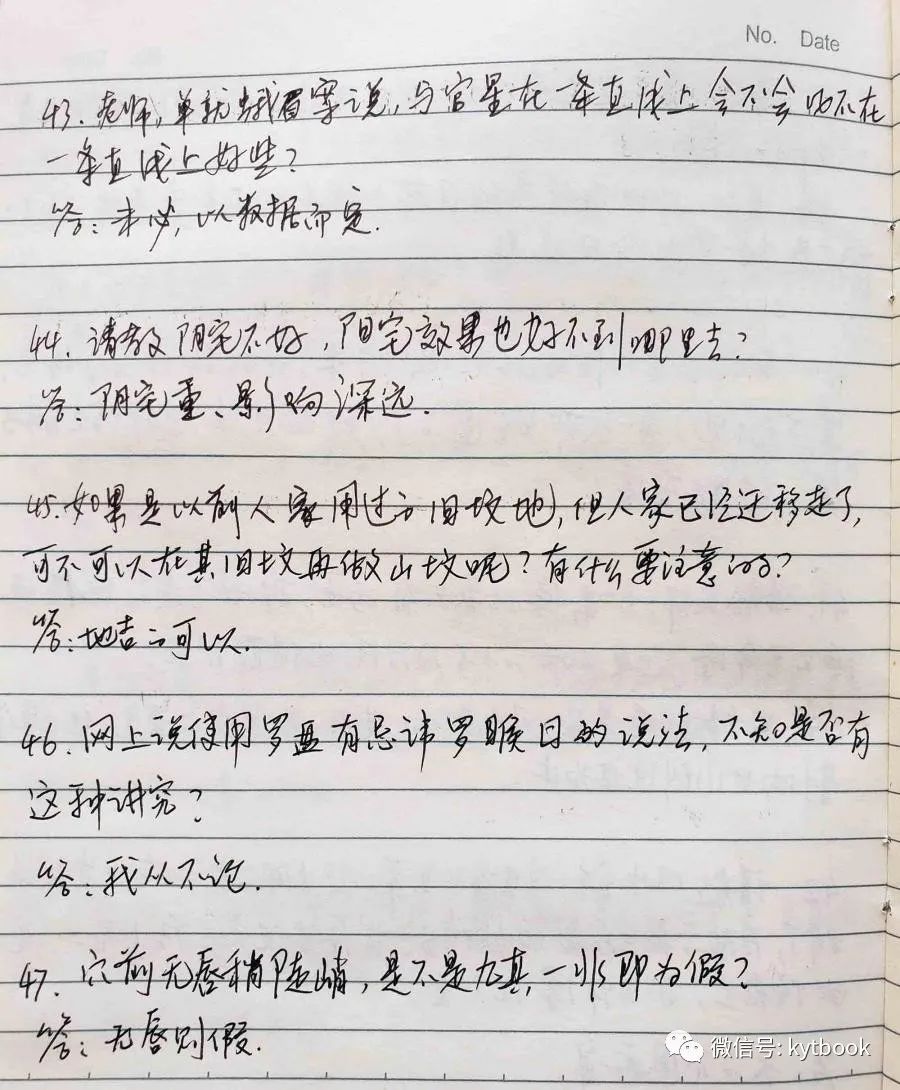 No. Date
43. 老师,单就峨眉案说,与官星在一条直线上会不会比不在
一条直线上好些?
答:未必,以数据而定.
44. 请教阴宅不好,阳宅效果也好不到哪里去?
答:阴宅重、影响深远.
45. 如果是以前人家用过的旧坟地,但人家已经迁移走了,
可不可以在其旧坟再做山坟呢?有什么要注意的?
答:地吉的可以.
46. 网上说使用罗盘有忌讳罗睺日的说法,不知是否有
这种讲究?
答:我从不论.
47. 穴前无唇稍陡峭,是不是尤其,一水即为假?
答:无唇则假.
微信号: kytbook